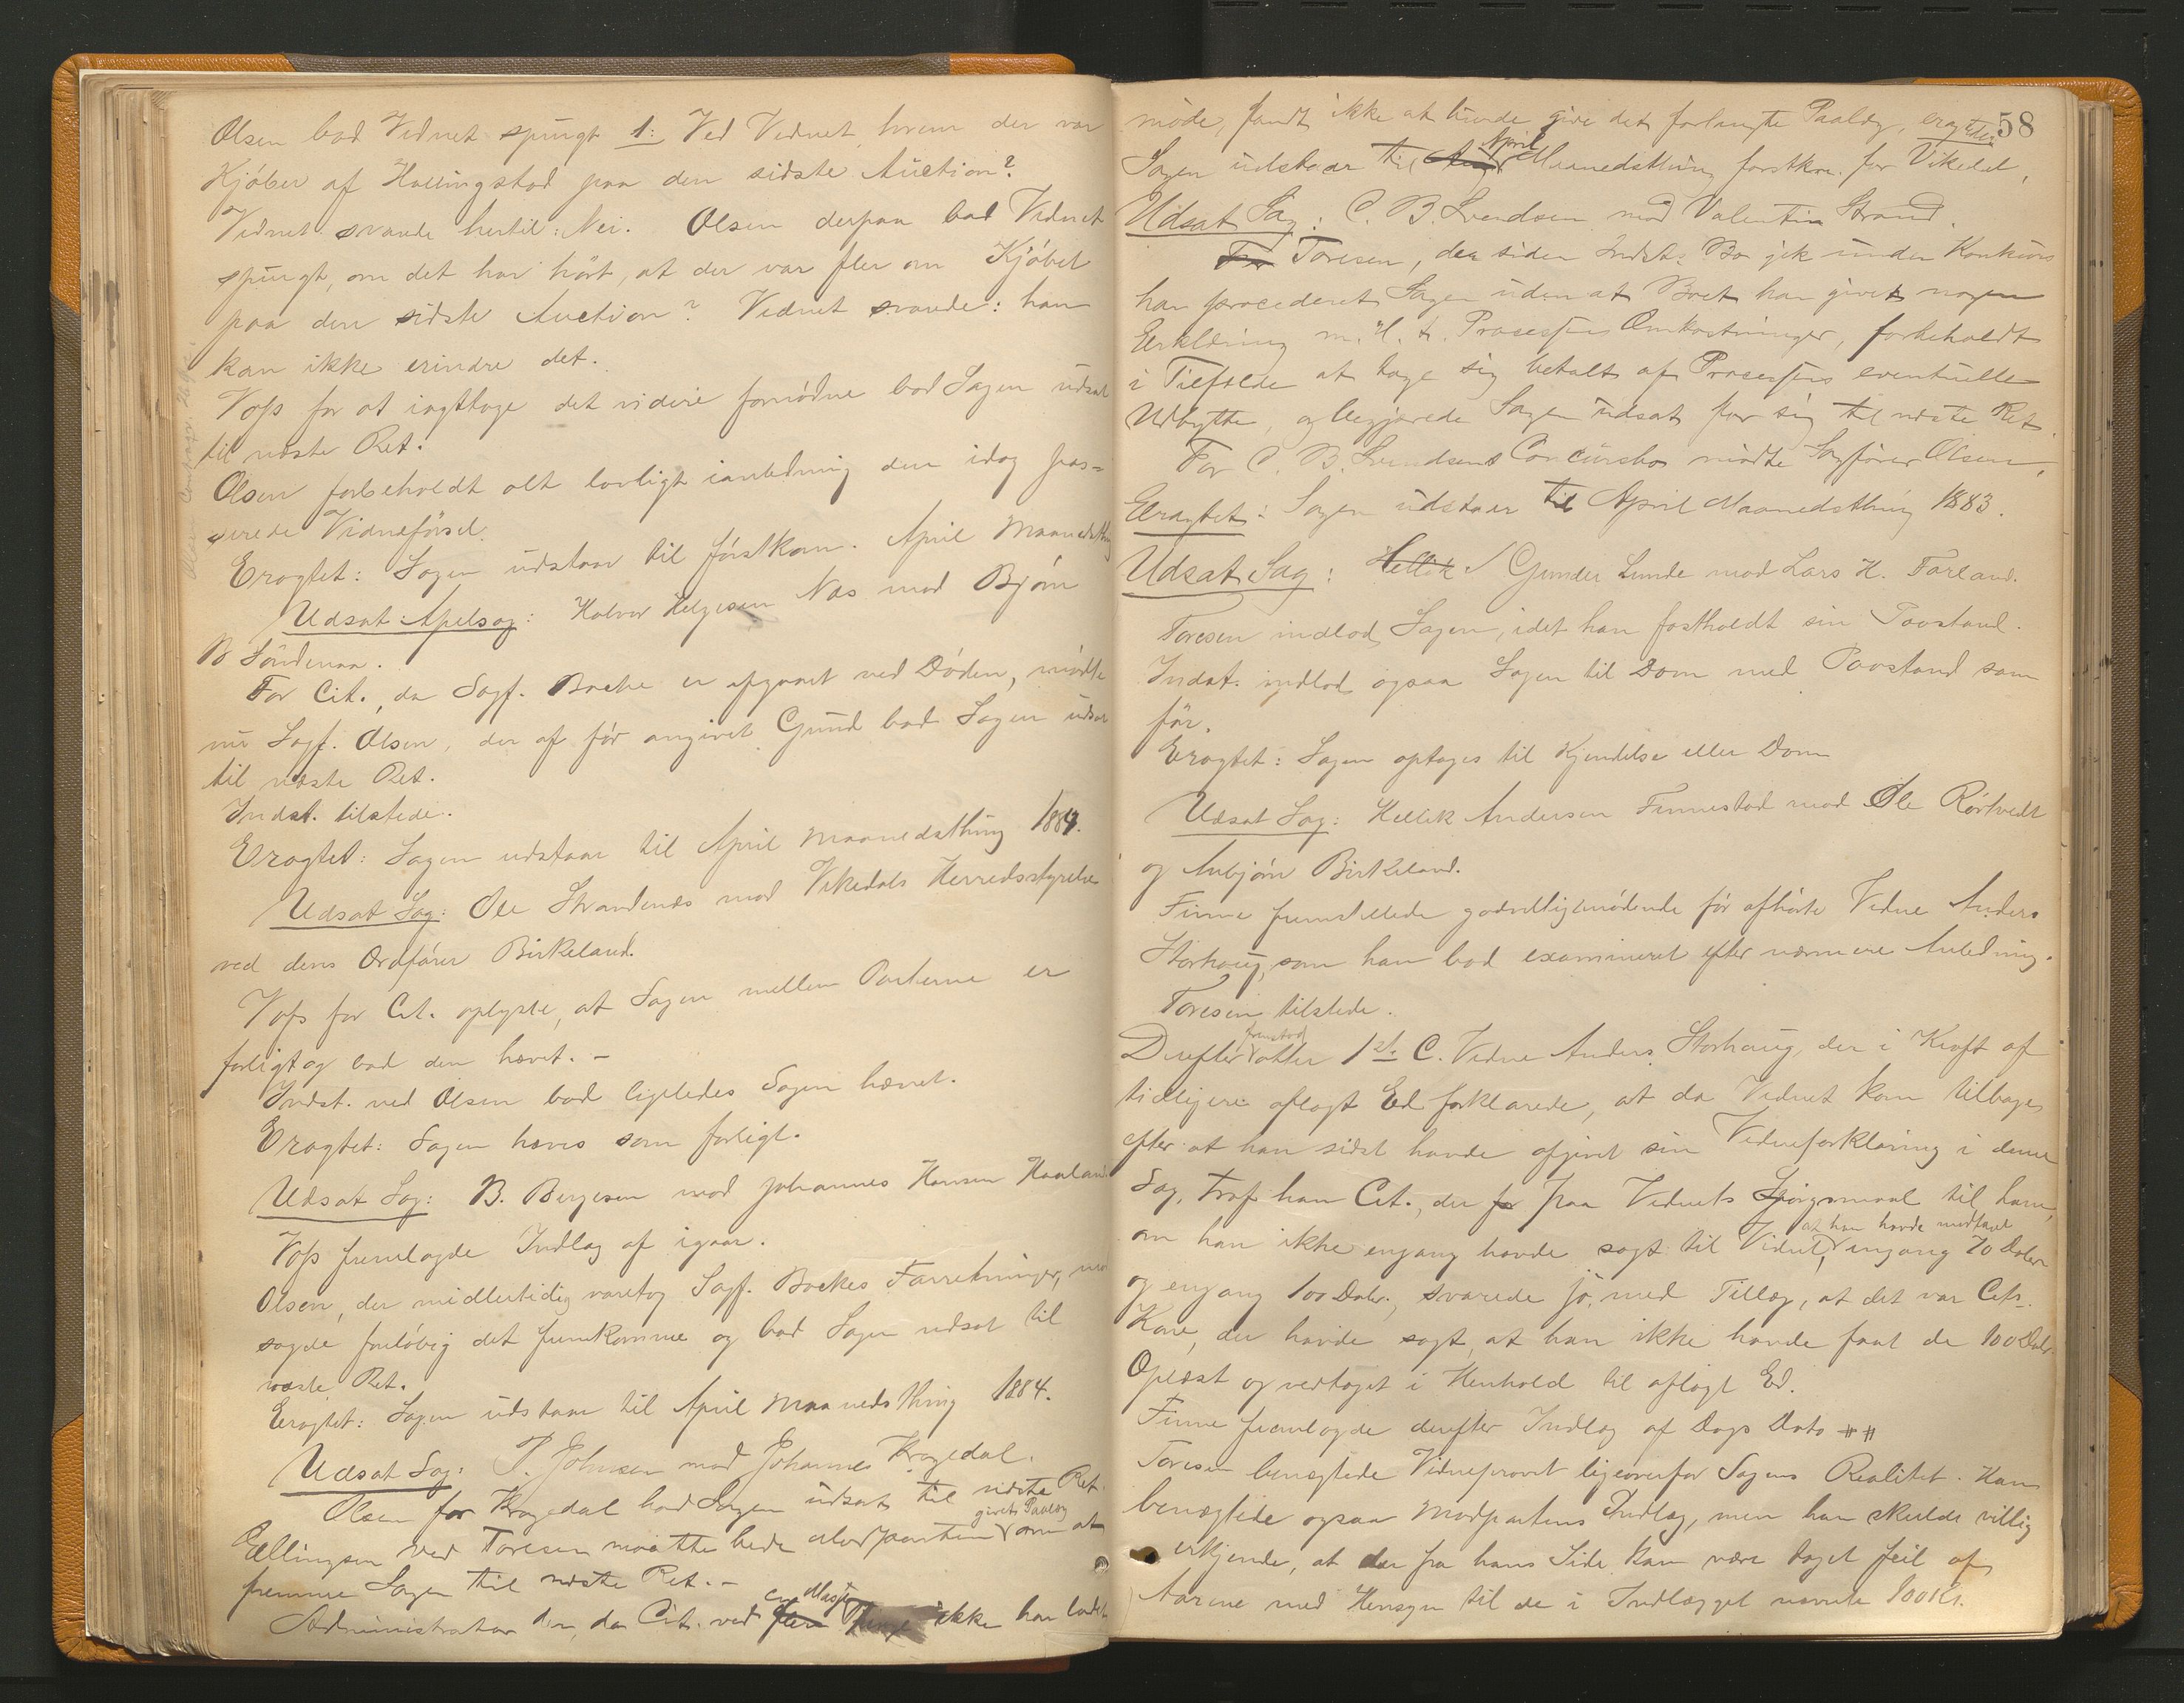 Olsen bad Vidnet spurgt 1: Ved Vidnet, hvem der var
Kjøber af Hallingstad paa den sidste Auction?
Vidnet svarede hertil: Nei. Olsen derpaa bad Vidnet
spurgt, om det har hørt, at der var fler om Kjøbet
paa den sidste Auction? Vidnet svarede: han
kan ikke erindre det.
Voss for at iagttage det videre fornødne bad Sagen udsat
til næste Ret.
Olsen forbeholdt alt lovligt ianledning den idag pas-
serede Vidneførsel.
Eragtet: Sagen udstaar til førstkom. April Maanedsthing
Udsat Apelsag: Halvor Helgesen Næs mod Bjørn
B Søndenaa.
For Cit., da Sagf. Backe er afgaaet ved Døden, mødte
nu Sagf. Olsen, der af før angivet Grund bad Sagen udsat
til næste Ret.
Indst. tilstede.
Eragtet: Sagen udstaar til April Maanedsthing 1884.
Udsat Sag: Ole Strandenæs mod Vikedals Herredsstyrelse
ved dens Ordfører Birkeland.
Voss for Cit. oplyste, at Sagen mellem Parterne er
forligt og bad den hævet. -
Indst. ved Olsen bad ligeledes Sagen hævet.
Eragtet: Sagen hæves som forligt.
Udsat Sag: B. Bergesen mod Johannes Hansen Haaland
Voss fremlagde Indlæg af igaar.
Olsen, der midlertidig varetog Sagf. Backes Forretninger, mod
sagde foreløbig det fremkomne og bad Sagen udsat til
næste Ret.
Eragtet: Sagen udstaar til April Maanedsthing 1884.
Udsat Sag: P. Johnsen mod Johannes Kragedal.
Olsen for Kragedal bad Sagen udsat til næste Ret.
givet Paalæg
Ellingsen ved Toresen maatte bede Modparten om at
fremme Sagen til næste Ret. -
Administrator den, da Cit. ved ikke har ladet
58
møde, fandt ikke at burde give det forlangte Paalæg, eragtede
April
Sagen udstaar til Maanedsthing førstkom. for Vikedal.
Udsat Sag: C. B. Svendsen mod Valentin Strand.
For Toresen, der siden Indst. Bo gik under Konkurs
har procederet Sagen uden at Boet har givet nogen
Erklæring m. H. t. Processens Omkostninger, forbeholdt
i Tilfælde at tage sig betalt af Processens eventuelle
Udbytte, og begjærede Sagen udsat for sig til næste Ret.
For C. B. Svendsens Concursbo mødte Sagfører Olsen.
Eragtet: Sagen udstaar til April Maanedsthing 1883.
Udsat Sag: Hellik Gunder Lunde mod Lars H. Farland.
Toresen indlod Sagen, idet han fastholdt sin Paastand.
Indst. indlod ogsaa Sagen til Dom med Paastand som
før.
Eragtet: Sagen optages til Kjendelse eller Dom
Udsat Sag: Hellik Andersen Finnestad mod Ole Rørtvedt
og Anbjørn Birkeland.
Finne fremstillede godvilligmødende før afhørte Vidne Anders
Storhaug, som han bad examineret efter nærmere Anledning.
Toresen tilstede.
fremstod
Derefter atter 1ste C. Vidne Anders Storhaug, der i Kraft af
tidligere aflagt Ed forklarede, at da Vidnet kom tilbage
efter at han sidst havde afgivet sin Vidneforklaring i denne
Sag, traf han Cit., der paa Vidnets Spørgsmaal til ham,
at han havde modtaget
om han ikke engang havde sagt til Vidnet, engang 70 Daler
og engang 100 Daler, svarede jo, med Tillæg, at det var Cits.
Kone, der havde sagt, at han ikke havde faat de 100 Daler.
Oplæst og vedtaget i Henhold til aflagt Ed.
Finne fremlagde derefter Indlæg af Dags Dato
Toresen benægtede Vidneprovet ligeoverfor Sagens Realitet. Han
benægtede ogsaa Modpartens Indlæg, men han skulde villig
erkjende, at der fra hans Side kan være taget feil af
Aarene med Hensyn til de i Indlægget nævnte 100 Kr.